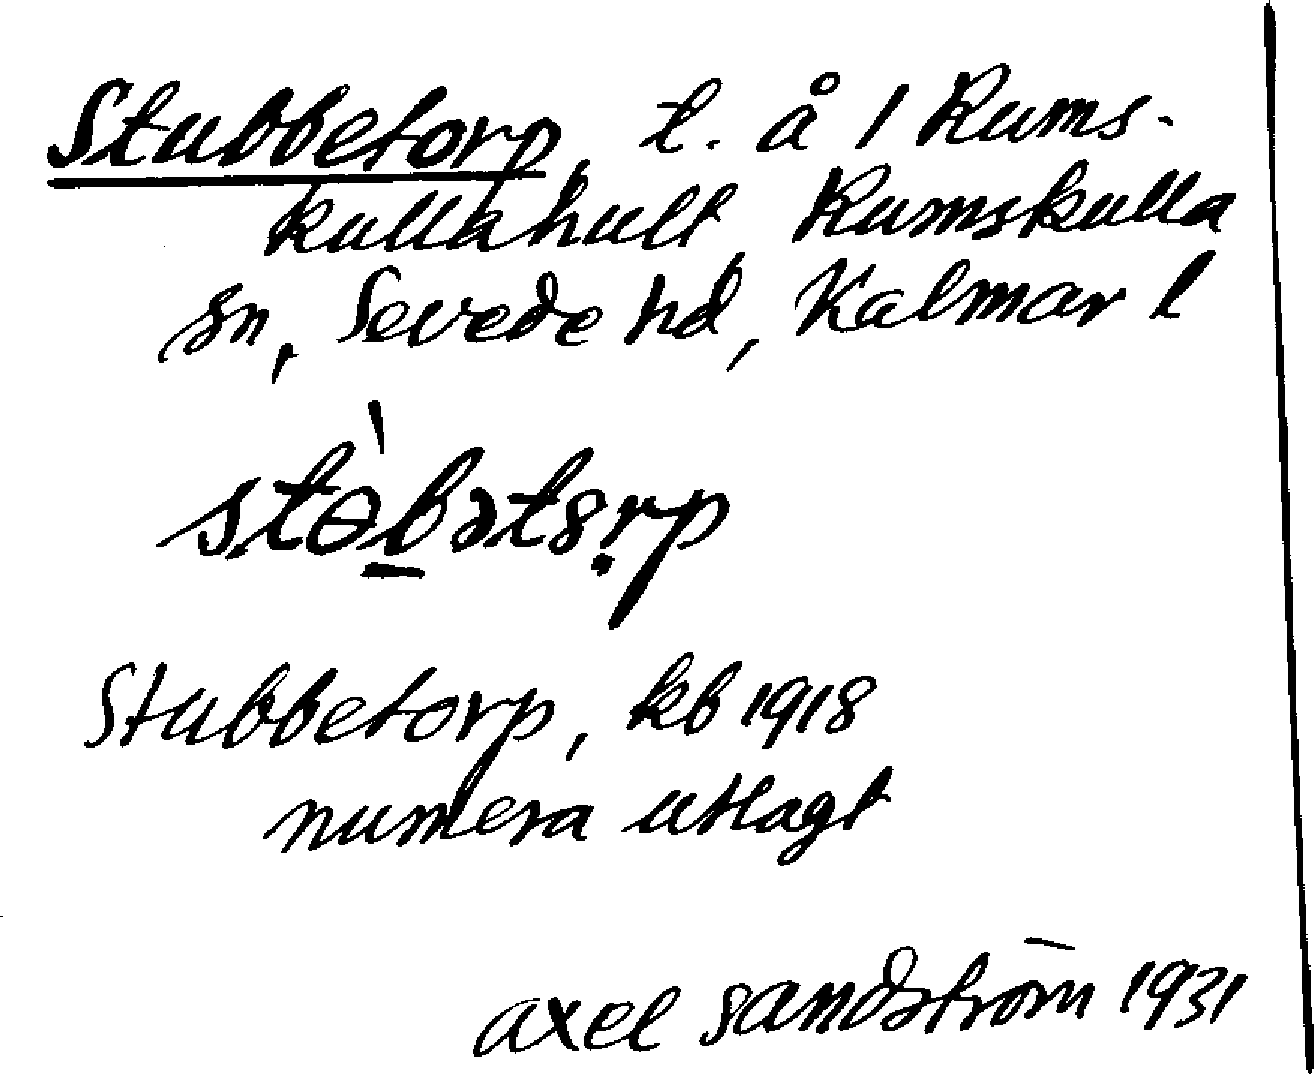 Stubbetorp, t. å 1 Rums-
kullahult, Rumskulla
sn, Sevede hd, Kalmar l
stɵ̀b̲ətȣ̣rp
Stubbetorp, kb 1918
numera utlagt
axel sandström 1931